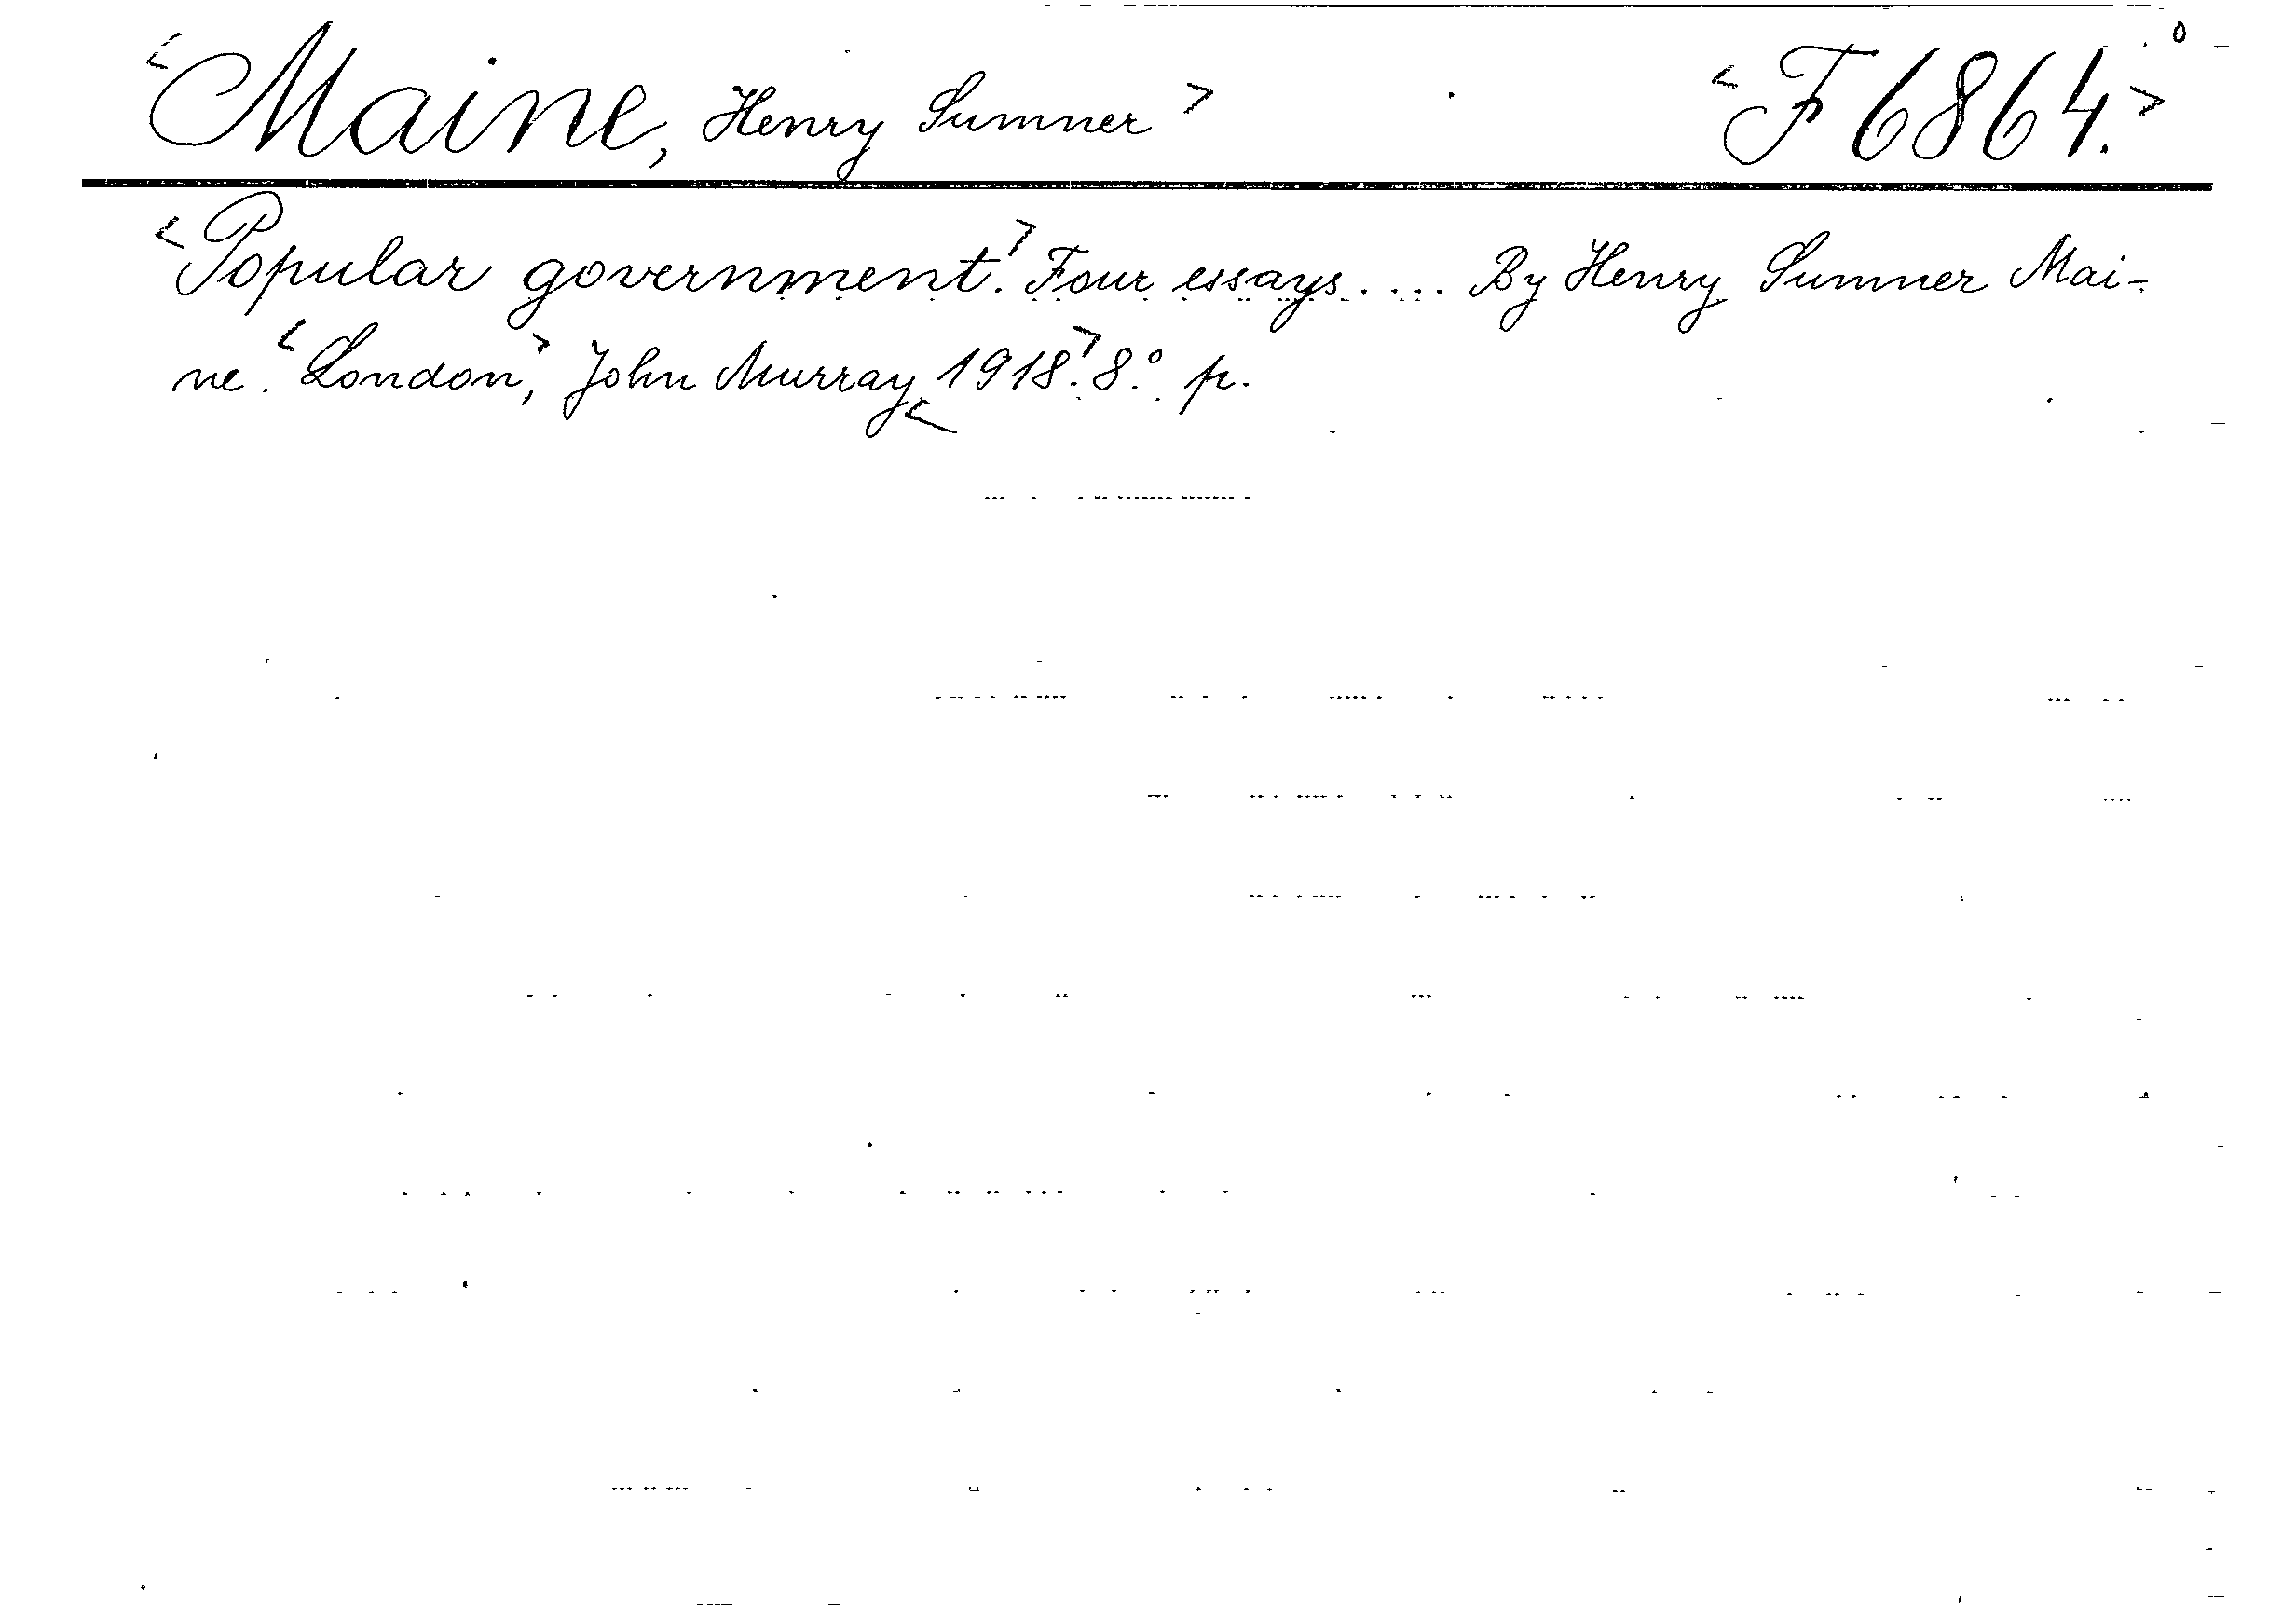 <Maine, Henry Sumner> <F 6864.>
<Popular government.> Four essays. ... By Henry Sumner Mai-
ne. <London,> John Murray <1918.> 8.° p.